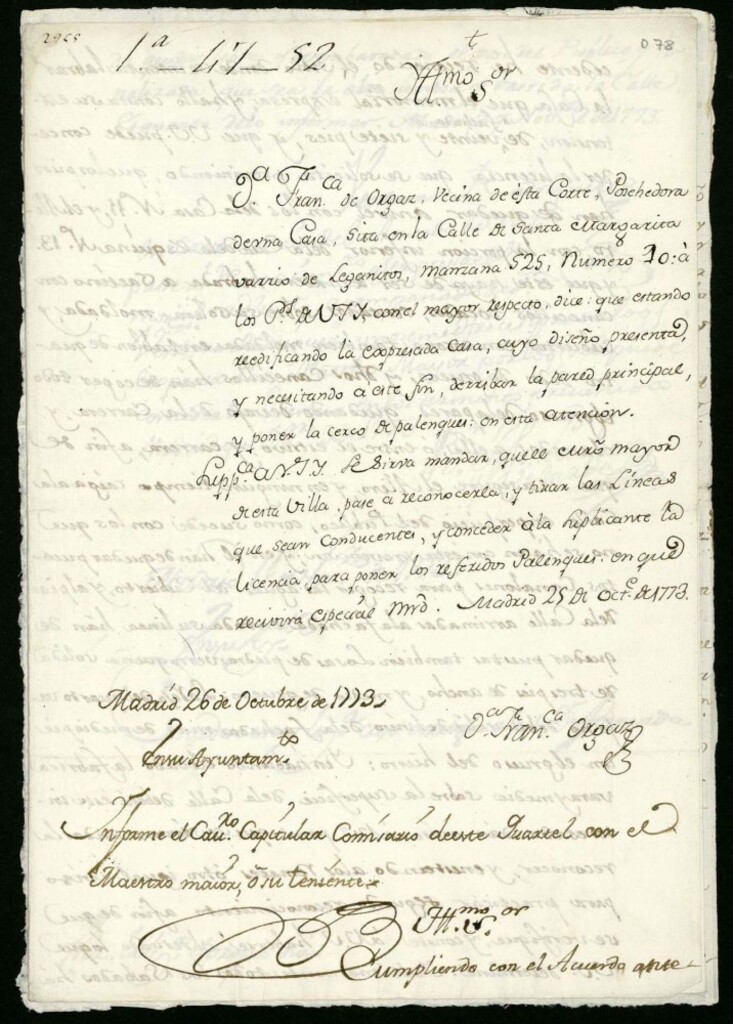 2968
078
1ª — 47 — 52
†
Illmo Sor
Dª. Franca. de Orgaz, Vecina de ésta Corte, Posehedora
de vna Casa, Sita en la Calle de Santa Margarita
varrio de Leganitos, manzana 525, Numero 10: à
los Ps. de V I Y. con el mayor respecto, dice: que estando
reedificando la expresada Casa, cuyo diseño, presenta,
y necesitando á este fin, derribar la pared principal,
y poner la cerco de palenques: en esta atencion.
Suppca. a V I Y. se sirva mandar, que el mayor
de esta Villa, pase á reconocerla, y tirar las Líneas
que sean Conducentes, y conceder à la suplicante la
licencia, para poner los referidos Palenques: en que
recivirá especial mrd. Madrid 25 de Octe. de 1773.
Madrid 26 de Octubre de 1773.
Dª. Franca. Orgaz
En su Ayuntamto.
Informe el Cauro. Capitular Comisario de este Quartel con el
Maestro maior, ó su teniente.
Illmo. Sor.
Cumpliendo con el Acuerdo ante